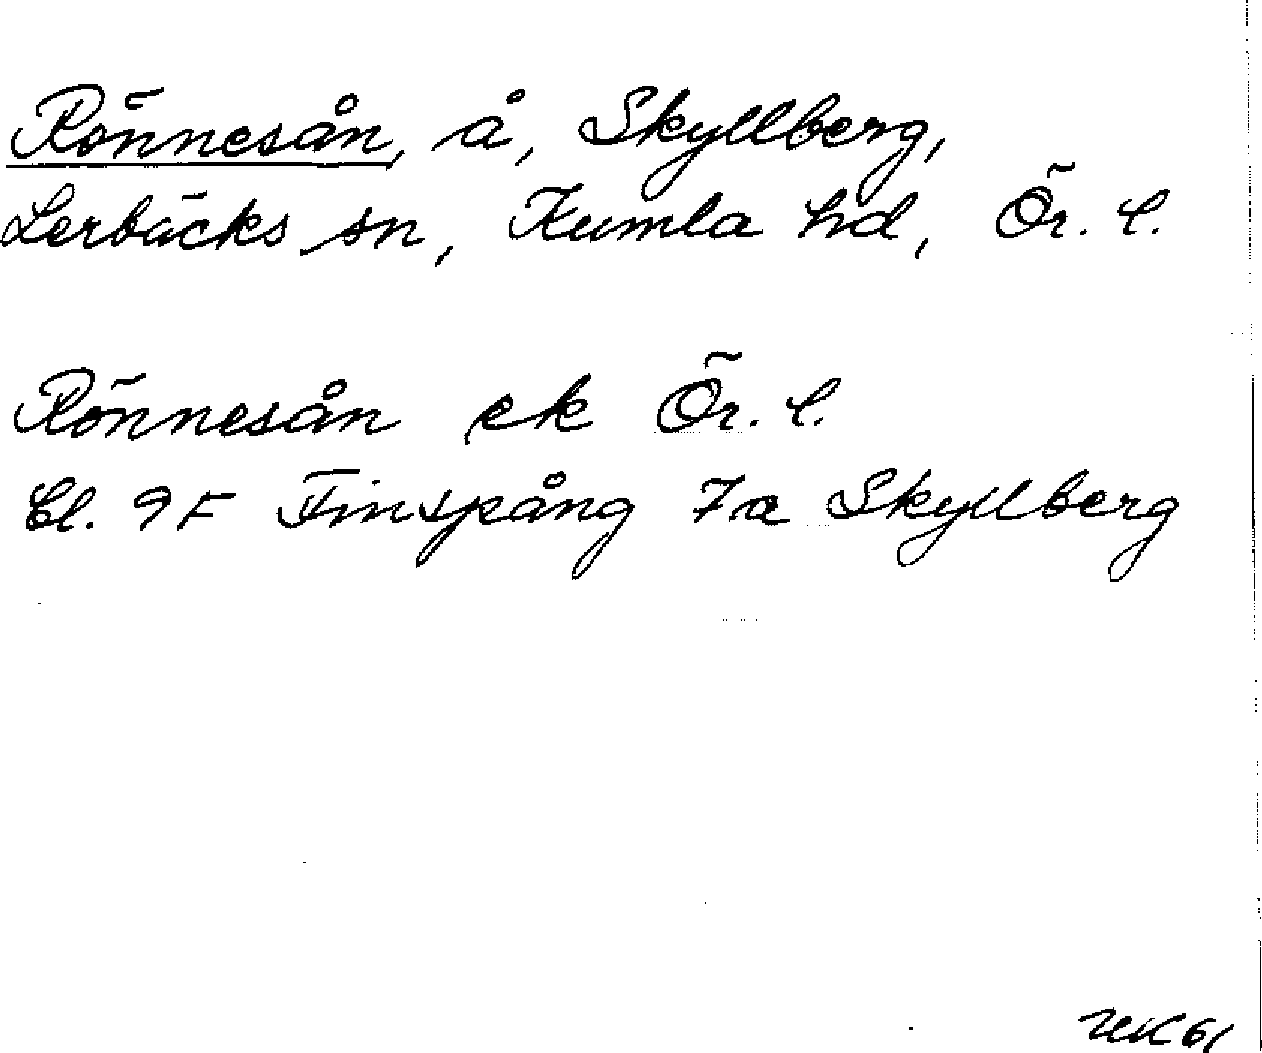 Rönnesån, å, Skyllberg,
Lerbäcks sn, Kumla hd, Ör. l.
Rönnesån ek Ör. l.
Bl. 9F Finspång 7a Skyllberg